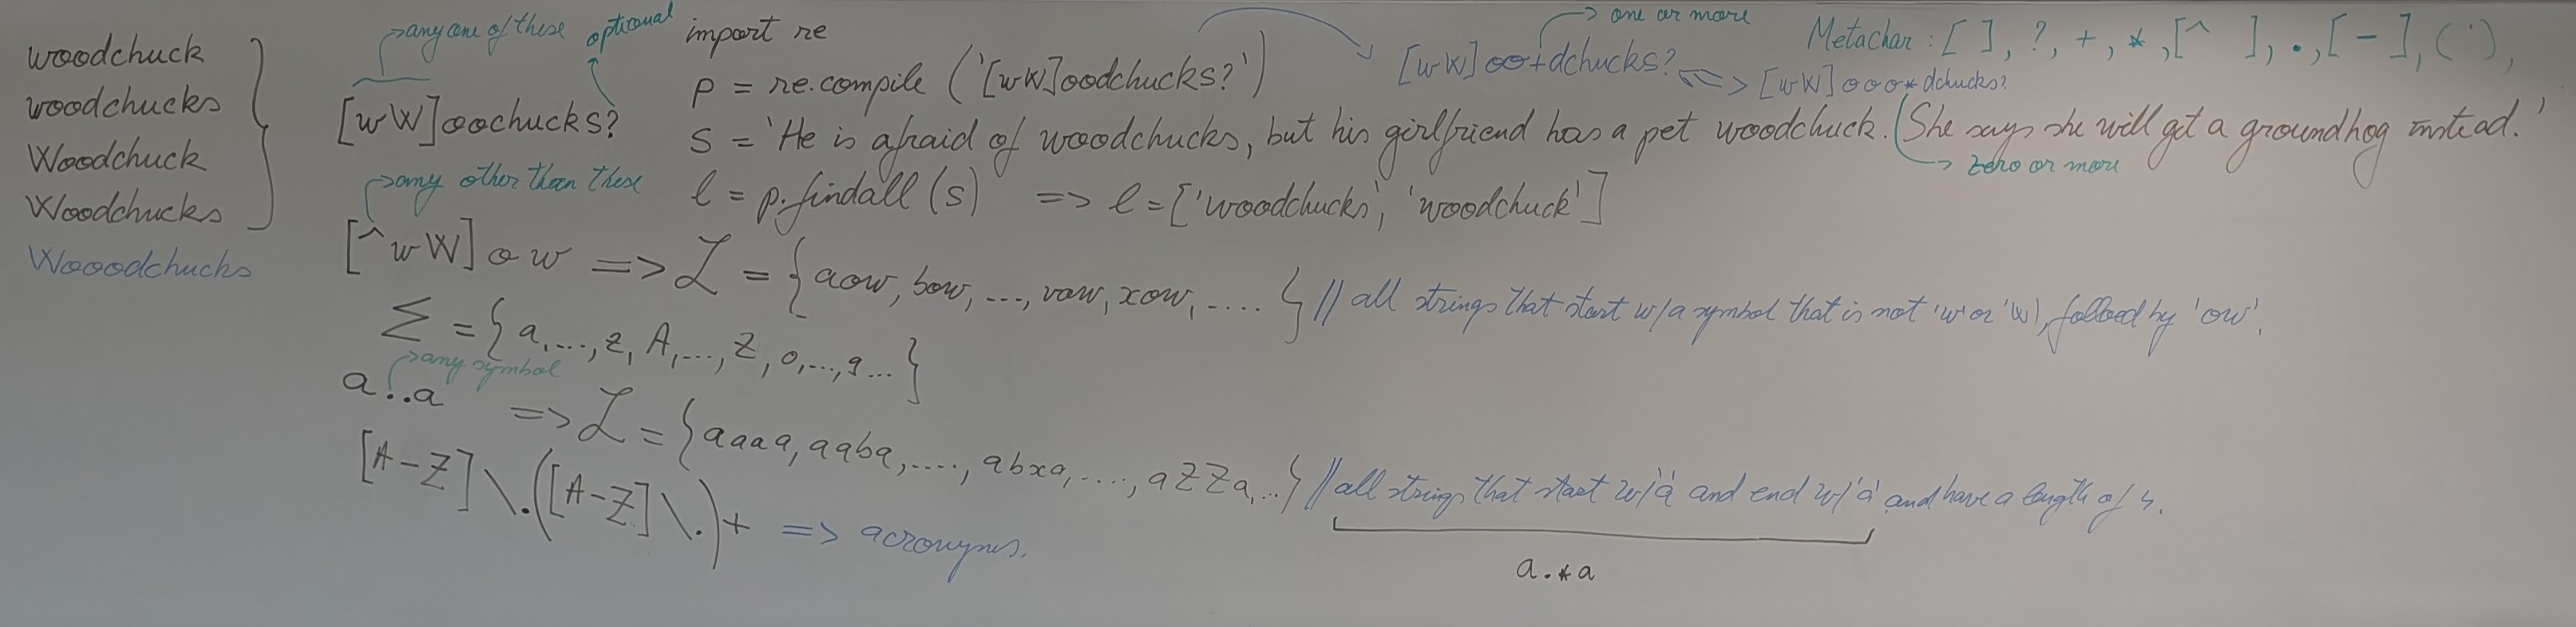 woodchuck
woodchucks
Woodchuck
Woodchucks
Wooodchucks
any one of these
optional
[wW]oochucks?
import re
p = re.compile ('[wW]oodchucks?')
one or more
[wW]oo+dchucks? <=> [wW]ooo*dchucks?
zero or more
Metachar : [ ], ?, +, *, [^ ], ., [ - ], ( ),
s = 'He is afraid of woodchucks, but his girlfriend has a pet woodchuck. She says she will get a groundhog instead.'
l = p.findall (s) => l = ['woodchucks', 'woodchuck']
any other than these
[^wW]ow => L = {aow, bow, ..., vow, xow, .... } // all strings that start w/a symbol that is not 'w' or 'W', followed by 'ow'.
Σ = {a,...,z, A,..., Z, 0,...,9... }
any symbol
a..a => L = {aaaa, aaba, ...., abxa, ...., aZZa, ..} // all strings that start w/'a' and end w/'a' and have a length of 4.
a.*a
[A-Z]\.([A-Z]\.)+ => acronyms.